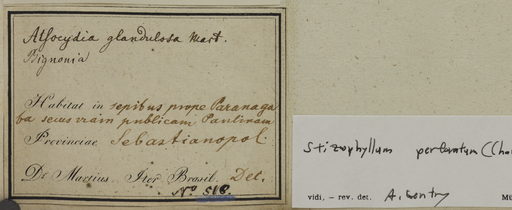 Alsocydia glandulosa Mart.
Bignonia
Habitat in sepibus prope Paranaga
ba secus viam publicam Paulinam
Provinciae Sebastianopol.
Dr. Martius Iter Brasil. Det.
No 518
Stizophyllum perforatum (Cha
vidi, – rev. det. A. Gentry
MÜ